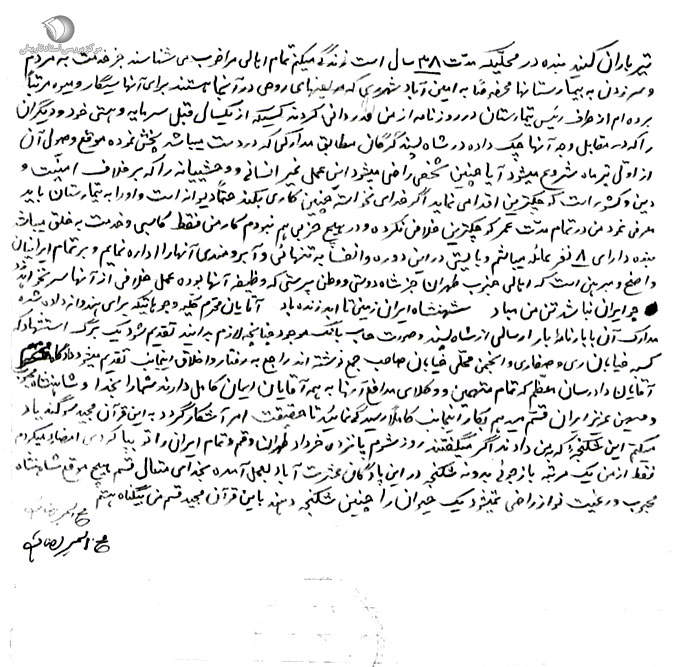 مرکز بررسی اسناد تاریخی
تیر باران کنید بنده در محلیکه مدت ۳۸ سال است زندگی میکنم تمام اهالی مرا خوب می شناسند جز خدمت به مردم
و سر زدن به بیمارستانها مخصوصا به امین آباد شهرری که مریضهای روحی در آنجا هستند برای آنها سیگار و میوه مرتباً
برده ام از طرف رئیس تیمارستان در روزنامه از من قدردانی کردند کسیکه از یکسال قبل سرمایه و هستی خود و دیگران
را که در مقابل وجه آنها چک داده در شاه پسند گرگان مطابق مدارکی که در دست میباشد پخش نموده موقع وصول آن
از اول تیر ماه شروع میشود آیا چنین شخصی راضی میشود این عمل غیر انسانی و وحشیانه را که بر خلاف امنیت و
دین و کشور است کوچکترین اقدامی نماید اگر خدای نخواسته چنین کاری بکند حتماً دیوانه است و او را به تیمارستان باید
معرفی نمود من در تمام مدت عمر کوچکترین خلافی نکرده و در هیچ حزبی هم نبودم کار من فقط کاسبی و خدمت به خلق میباشد
بنده دارای ۸ نفر عائله میباشم و بایستی در این دوره وانفسا به تنهائی و آبرومندی آنها را اداره نمایم و بر تمام ایرانیان
واضح و مبرهن است که اهالی جنوب طهران جز شاه دوستی و وطن پرستی که وظیفه آنها بوده عمل خلافی از آنها سر نخواهد زد
چو ایران نباشد تن من مباد شهنشاه ایران زمین تا ابد زنده باد آقایان محترم کلیه وجوهاتیکه برای هندوانه داده شده
مدارک آن با بارنامه بار ارسالی از شاه پسند و صورت حساب بانک موجود چنانچه لازم بدانید تقدیم شود یک برگ استشهاد که
کسبه خیابان ری و صفاری و انجمن محلی خیابان صاحب جمع نوشته اند راجع به رفتار و اخلاق اینجانب تقدیم میشود دادگاه محترم
آقایان دادرسان معظم که تمام متهمین و وکلای مدافع آنها به همه آقایان ایمان کامل دارند شما را بخدا و شاهنشاه محبوب
و میهن عزیز ایران قسم میدهم بکار اینجانب کاملا رسیدگی نمائید تا حقیقت امر آشکار گردد به این قرآن مجید سوگند یاد
میکنم این شکنجه که بمن دادند اگر میگفتند روز شوم پانزده خرداد طهران و قم و تمام ایران را تو بپا کردی امضاء میکردم
فقط از من یک مرتبه بازجوئی بدون شکنجه در این پادگان عشرت آباد بعمل آمده بخدای متعال قسم هیچ موقع شاهنشاه
محبوب و رعیت نواز راضی نمیشود یک حیوان را چنین شکنجه دهند باین قرآن مجید قسم من بیگناه هستم